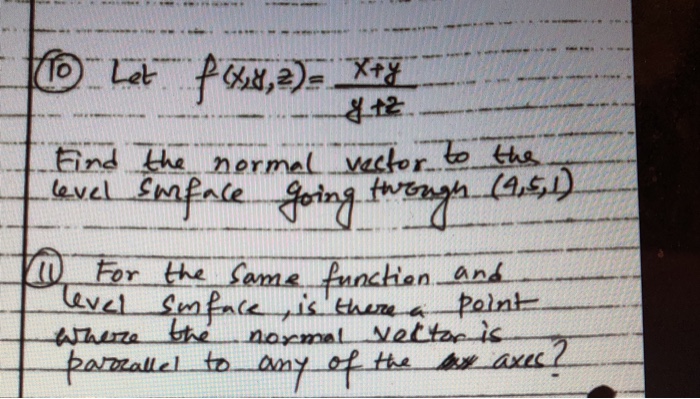 10 Let f(x,y,z) = x+y / y+z
Find the normal vector to the
level surface going through (9,5,1)
11 For the same function and
level surface, is there a point
where the normal vector is
parallel to any of the axes?